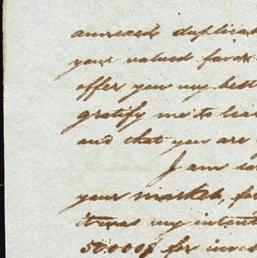 annexed duplicat
your valued favor
offer you my best
gratify me to lea
and that you are
I am so
your market, fo
it was my intent
50.000$ for inves